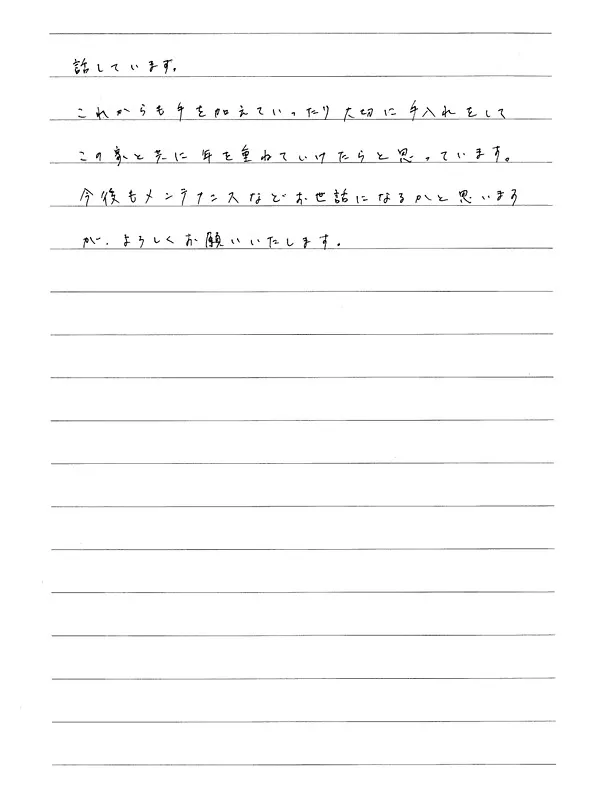 話しています。
これからも手を加えていったり大切に手入れをして
この家と共に年を重ねていけたらと思っています。
今後もメンテナンスなどお世話になるかと思います
が、よろしくお願いいたします。